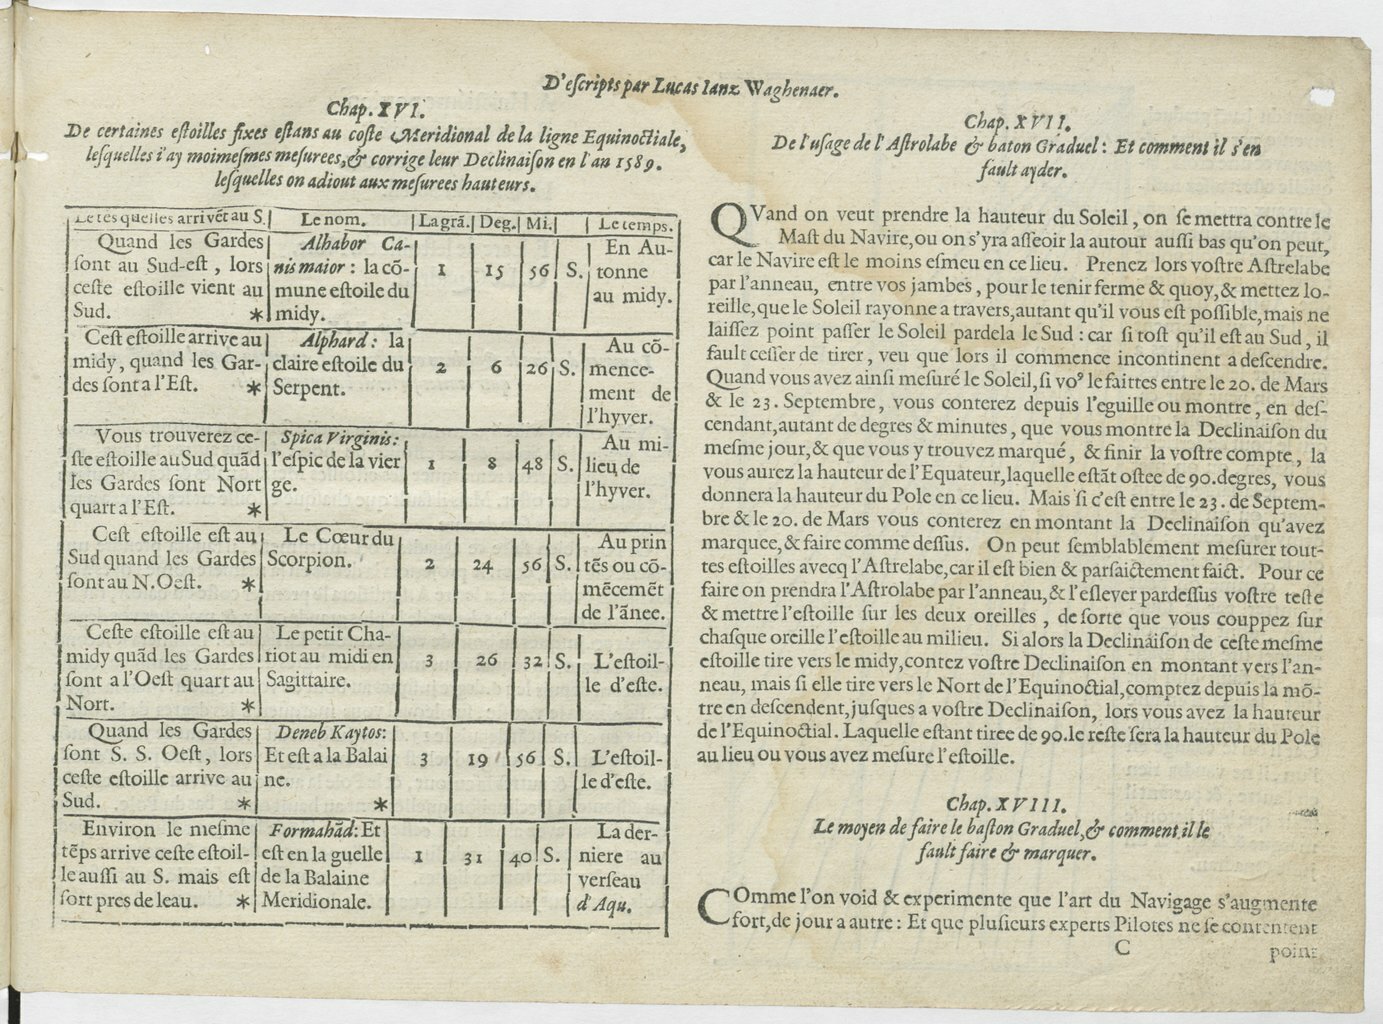 D'eſcripts par Lucas Ianz Waghenaer.
Chap. XVI.
De certaines eſtoilles fixes eſtans au coſte Meridional de la ligne Equinoctiale,
leſquelles i'ay moimeſmes meſurees, & corrige leur Declinaiſon en l'an 1589.
leſquelles on adiout aux meſurees hauteurs.
Le tẽs quelles arrivẽt au S. | Le nom. | La grã. | Deg. | Mi. | | Le temps.
Quand les Gardes | Alhabor Ca- | En Au-
ſont au Sud-eſt, lors | nis maior : la cõ- | 1 | 15 | 56 | S. | tonne
ceſte eſtoille vient au | mune eſtoile du | au midy.
Sud. * | midy.
Ceſt eſtoille arrive au | Alphard : la | Au cõ-
midy, quand les Gar- | claire eſtoile du | 2 | 6 | 26 | S. | mence-
des ſont a l'Eſt. * | Serpent. | ment de
l'hyver.
Vous trouverez ce- | Spica Virginis: | Au mi-
ſte eſtoille au Sud quãd | l'eſpic de la vier | 1 | 8 | 48 | S. | lieu de
les Gardes ſont Nort | ge. | l'hyver.
quart a l'Eſt. *
Ceſt eſtoille eſt au | Le Cœur du | Au prin
Sud quand les Gardes | Scorpion. | 2 | 24 | 56 | S. | tẽs ou cõ-
ſont au N. Oeſt. * | mẽcemẽt
de l'ãnee.
Ceſte eſtoille eſt au | Le petit Cha-
midy quãd les Gardes | riot au midi en | 3 | 26 | 32 | S. | L'eſtoil-
ſont a l'Oeſt quart au | Sagittaire. | le d'eſte.
Nort. *
Quand les Gardes | Deneb Kaytos:
ſont S. S. Oeſt, lors | Et eſt a la Balai | 3 | 19 | 56 | S. | L'eſtoil-
ceſte eſtoille arrive au | ne. | le d'eſte.
Sud. * | *
Environ le meſme | Formahãd: Et | La der-
tẽps arrive ceſte eſtoil- | eſt en la guelle | 1 | 31 | 40 | S. | niere au
le auſſi au S. mais eſt | de la Balaine | verſeau
fort pres de leau. * | Meridionale. | d'Aqu.
Chap. XVII.
De l'uſage de l'Aſtrolabe & baton Graduel : Et comment il s'en
fault ayder.
QVand on veut prendre la hauteur du Soleil, on ſe mettra contre le
Maſt du Navire, ou on s'yra aſſeoir la autour auſſi bas qu'on peut,
car le Navire eſt le moins eſmeu en ce lieu. Prenez lors voſtre Aſtrelabe
par l'anneau, entre vos jambes, pour le tenir ferme & quoy, & mettez lo-
reille, que le Soleil rayonne a travers, autant qu'il vous eſt poſſible, mais ne
laiſſez point paſſer le Soleil pardela le Sud : car ſi toſt qu'il eſt au Sud, il
fault ceſſer de tirer, veu que lors il commence incontinent a deſcendre.
Quand vous avez ainſi meſuré le Soleil, ſi voꝰ le faittes entre le 20. de Mars
& le 23. Septembre, vous conterez depuis l'eguille ou montre, en deſ-
cendant, autant de degres & minutes, que vous montre la Declinaiſon du
meſme jour, & que vous y trouvez marqué, & finir la voſtre compte, la
vous aurez la hauteur de l'Equateur, laquelle eſtãt oſtee de 90. degres, vous
donnera la hauteur du Pole en ce lieu. Mais ſi c'eſt entre le 23. de Septem-
bre & le 20. de Mars vous conterez en montant la Declinaiſon qu'avez
marquee, & faire comme deſſus. On peut ſemblablement meſurer tout-
tes eſtoilles avecq l'Aſtrelabe, car il eſt bien & parfaictement faict. Pour ce
faire on prendra l'Aſtrolabe par l'anneau, & l'eſlever pardeſſus voſtre teſte
& mettre l'eſtoille ſur les deux oreilles, de ſorte que vous couppez ſur
chaſque oreille l'eſtoille au milieu. Si alors la Declinaiſon de ceſte meſme
eſtoille tire vers le midy, contez voſtre Declinaiſon en montant vers l'an-
neau, mais ſi elle tire vers le Nort de l'Equinoctial, comptez depuis la mõ-
tre en deſcendent, juſques a voſtre Declinaiſon, lors vous avez la hauteur
de l'Equinoctial. Laquelle eſtant tiree de 90. le reſte ſera la hauteur du Pole
au lieu ou vous avez meſure l'eſtoille.
Chap. XVIII.
Le moyen de faire le baſton Graduel, & comment il le
fault faire & marquer.
COmme l'on void & experimente que l'art du Navigage s'augmente
fort, de jour a autre : Et que pluſieurs experts Pilotes ne ſe contentent
C
point